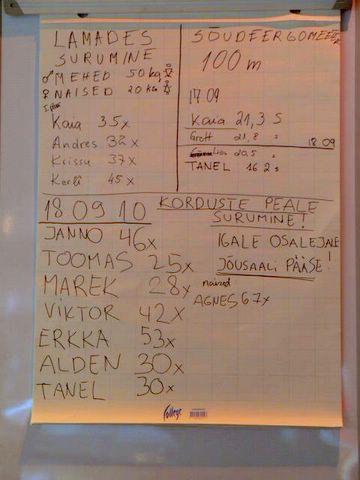 LAMADES
SURUMINE
♂ MEHED 50 kg
♀ NAISED 20 kg
Kaia 35x
Andres 32x
Krissu 37x
Kerli 45x
SÕUDEERGOMEETER
100 m
17.09
Kaia 21,3 s
Grott 21,8 "
18 09
20,5 "
TANEL 16 2 s
18 09 10
KORDUSTE PEALE
SURUMINE!
IGALE OSALEJALE
JÕUSAALI PÄÄSE!
JANNO 46x
TOOMAS 25x
MAREK 28x
VIKTOR 42x
ERKKA 53x
ALDEN 30x
TANEL 30x
naised
AGNES 67x
College